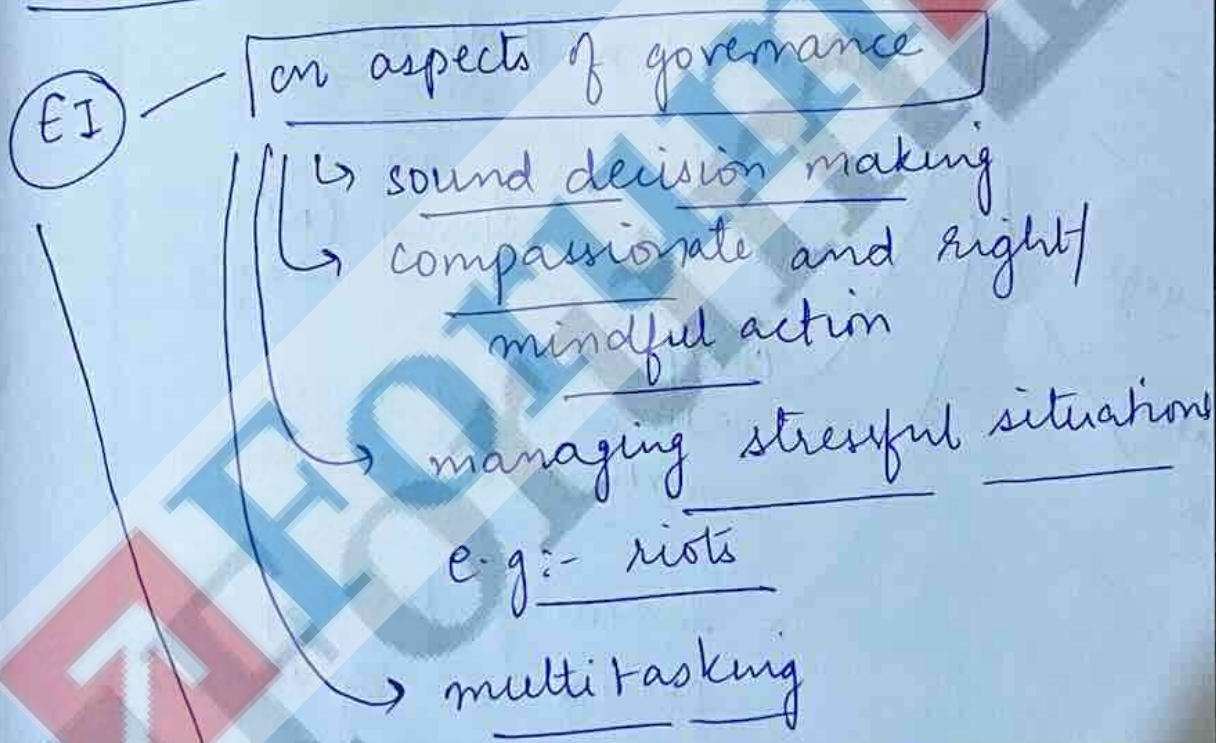 on aspects of governance
EI
↳ sound decision making
→ compassionate and right/
mindful action
→ managing stressful situations
e.g:- riots
→ multitasking
Forum